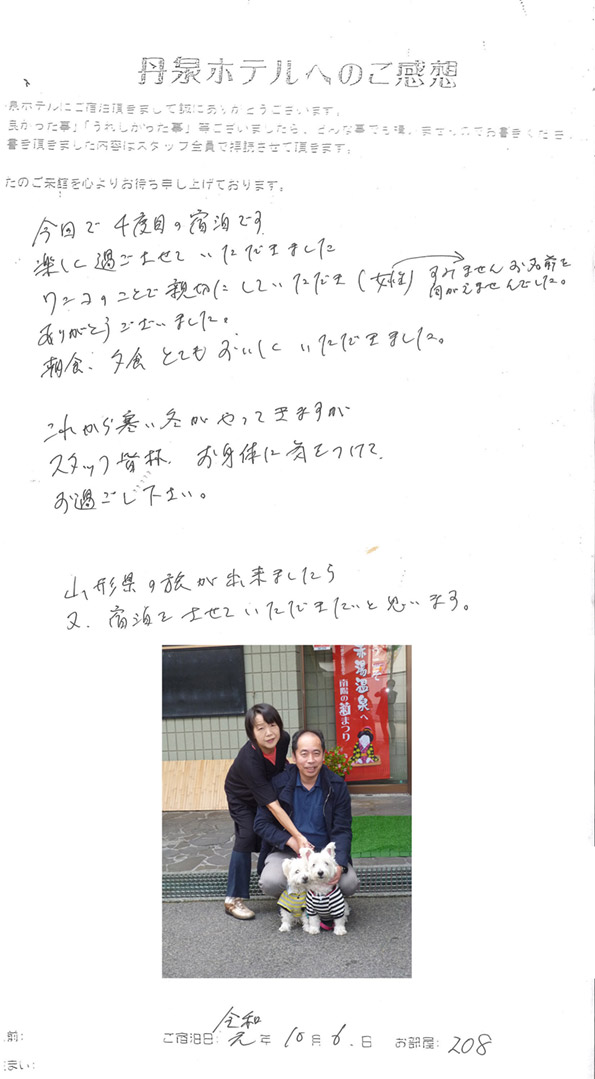 丹泉ホテルへのご感想
泉ホテルにご宿泊頂きまして誠にありがとうございます。
良かった事」「うれしかった事」等ございましたら、どんな事でも構いませんのでお書きくださ
書き頂きました内容はスタッフ全員で拝読させて頂きます。
たのご来館を心よりお待ち申し上げております。
今回で4度目の宿泊です
楽しく過ごさせていただきました
ワンコのことで親切にしていただき(女性) すみませんお名前を
伺がえませんでした。
ありがとうございました。
朝食、夕食とてもおいしくいただきました。
これから寒い冬がやってきますが
スタッフ皆様、お身体に気をつけて
お過ごし下さい。
山形県の旅が出来ましたら
又、宿泊をさせていただきたいと思います。
赤湯温泉へ
南陽の菊まつり
前:
ご宿泊日: 令和元年10月6.日 お部屋: 208
まい: